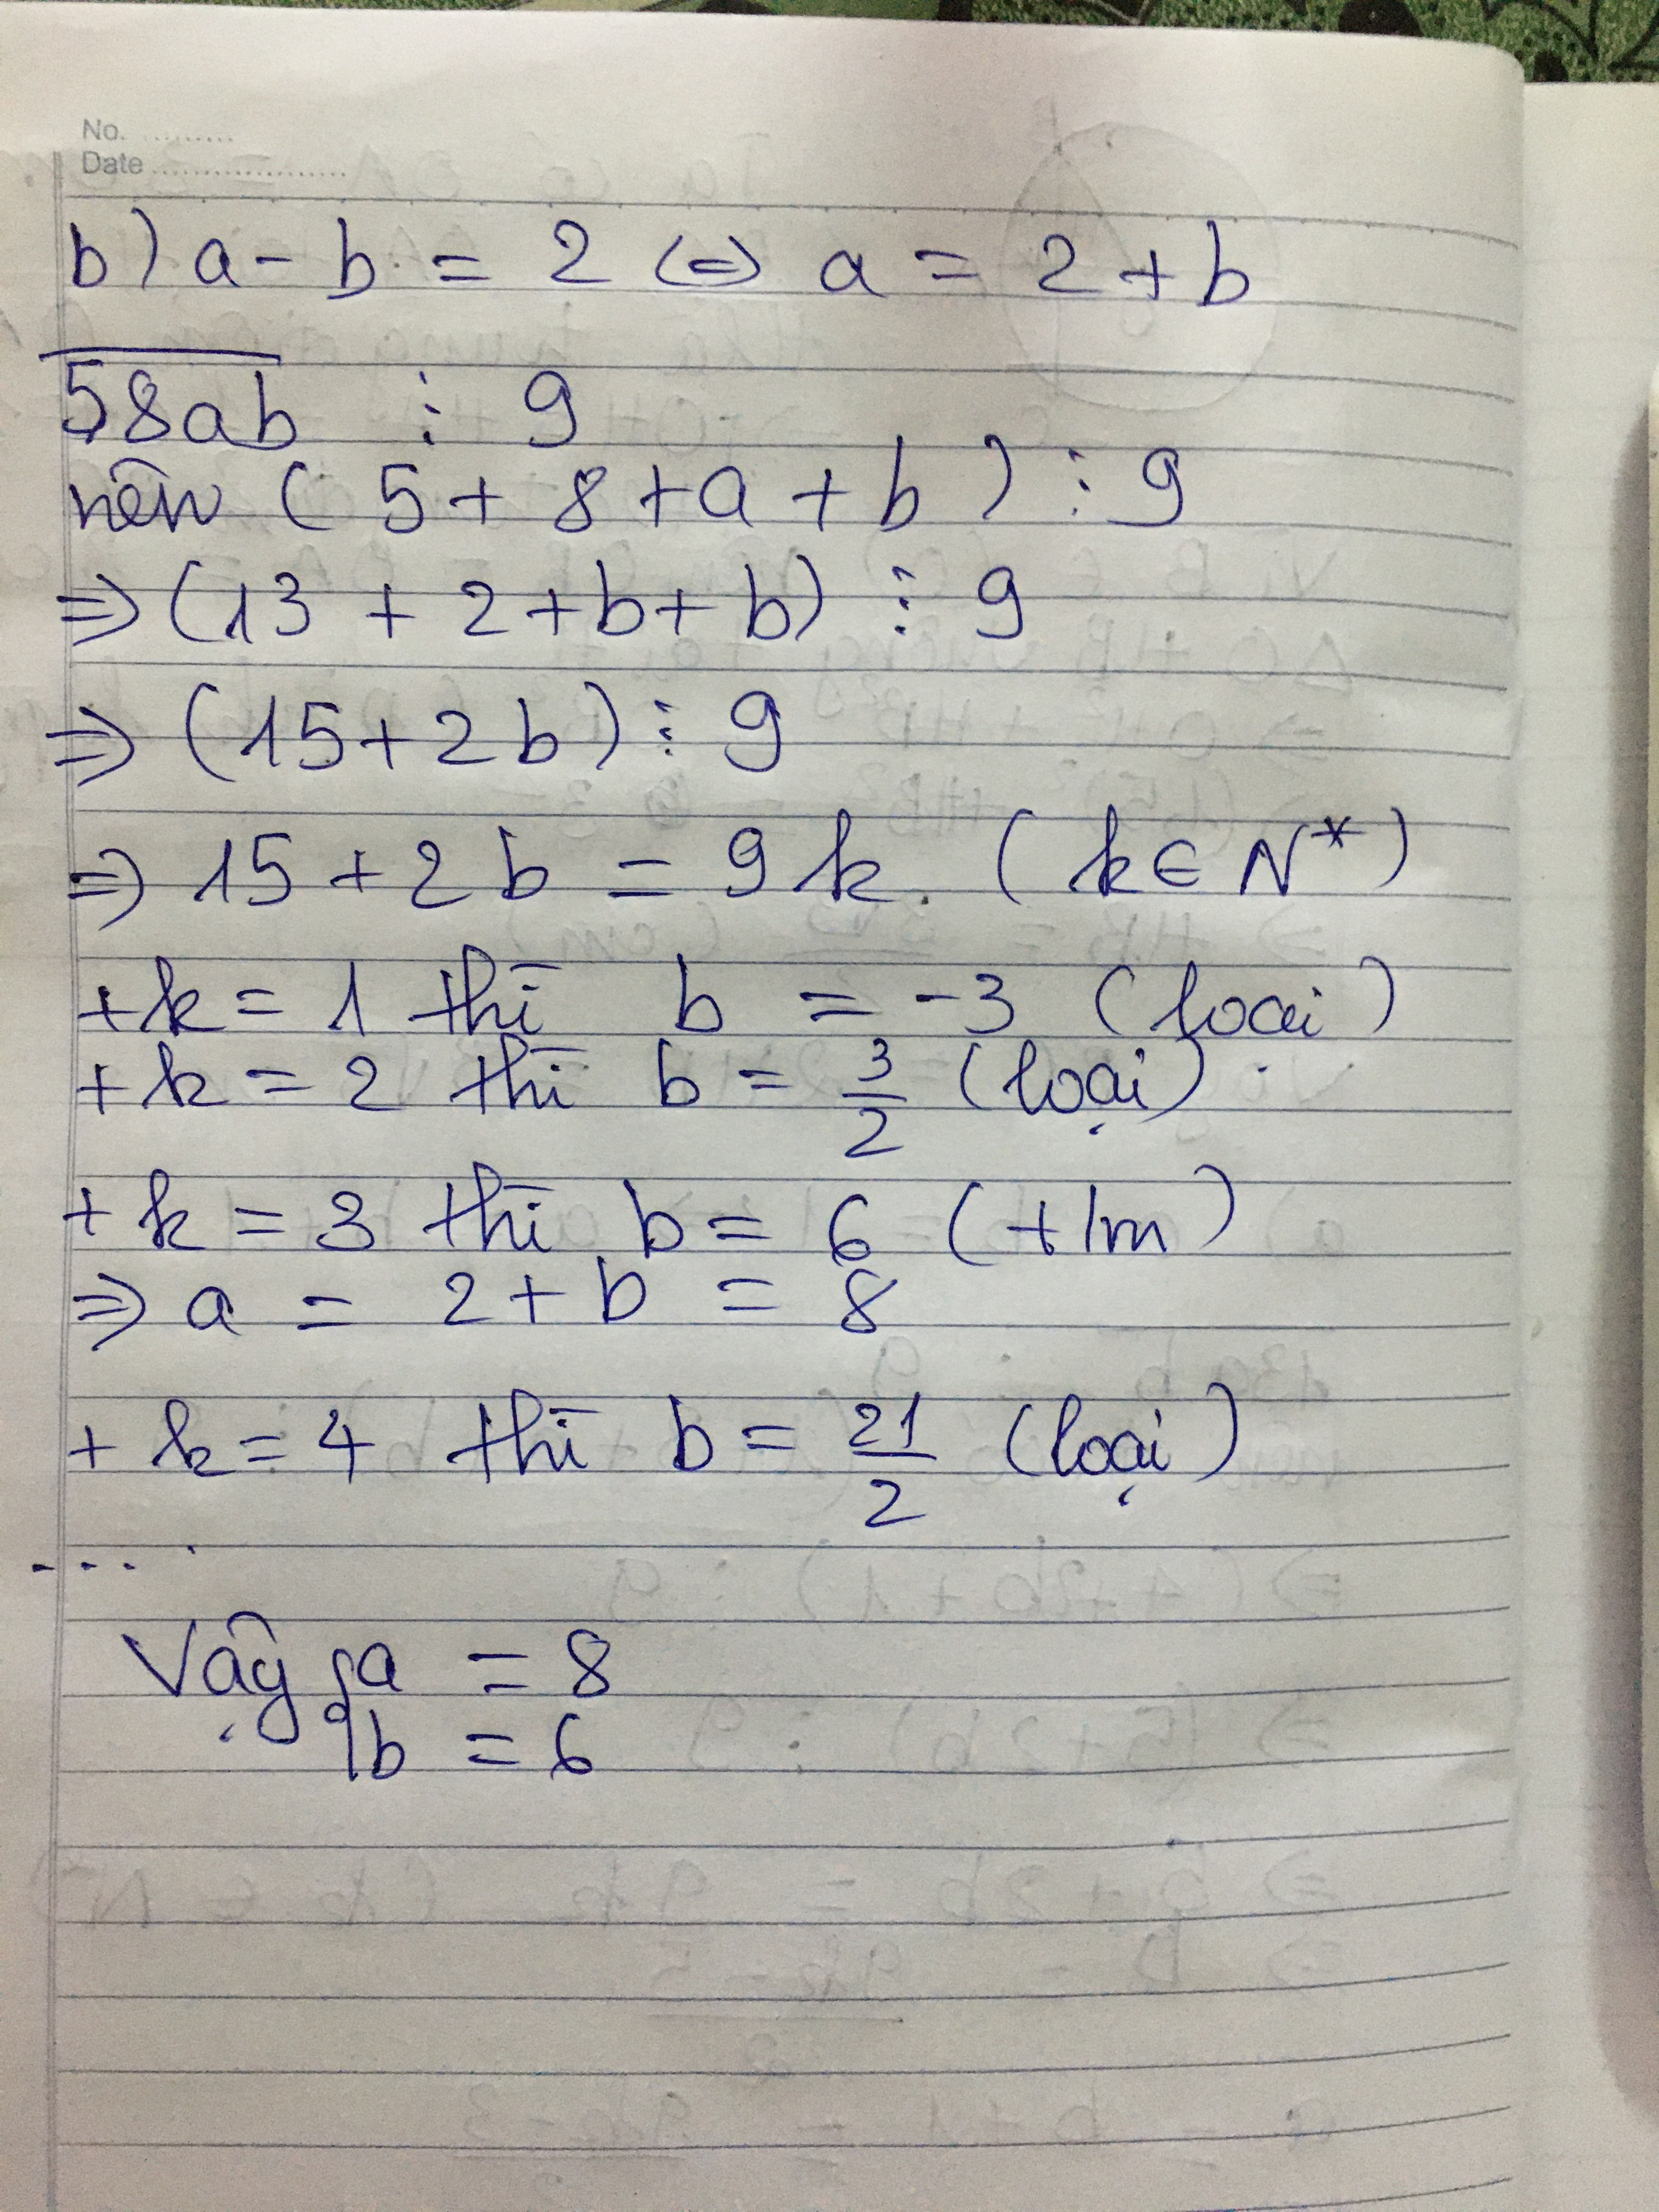 No. .........
Date ...................
b) a - b = 2 (=) a = 2 + b
58ab ⋮ 9
nên ( 5 + 8 + a + b ) ⋮ 9
=> (13 + 2 + b + b) ⋮ 9
=> (15 + 2b) ⋮ 9
=> 15 + 2b = 9k. ( k ∈ N* )
+ k = 1 thì b = -3 (loại)
+ k = 2 thì b = 3/2 (loại)
+ k = 3 thì b = 6 (t/m)
=> a = 2 + b = 8
+ k = 4 thì b = 21/2 (loại)
....
Vậy { a = 8
b = 6